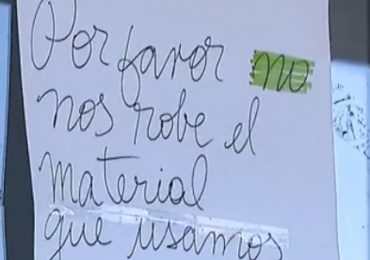 Por favor no
nos robe el
material
que usamos